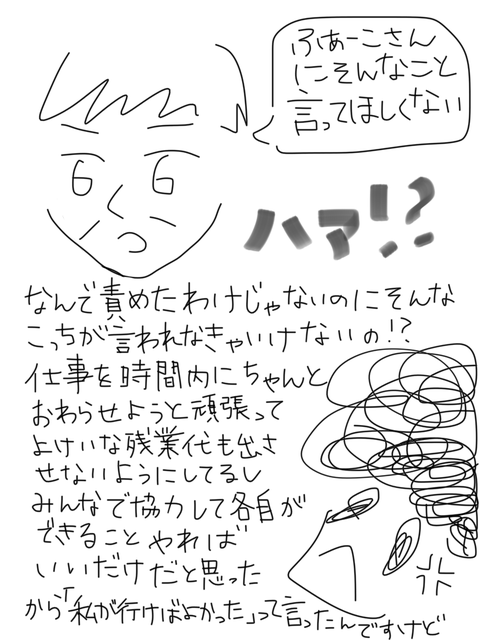 ふぁーこさん
にそんなこと
言ってほしくない
ハァ!?
なんで責めたわけじゃないのにそんな
こっちが言われなきゃいけないの!?
仕事を時間内にちゃんと
おわらせようと頑張って
よけいな残業代も出さ
せないようにしてるし
みんなで協力して各自が
できることやれば
いいだけだと思った
から「私が行けばよかった」って言ったんですけど